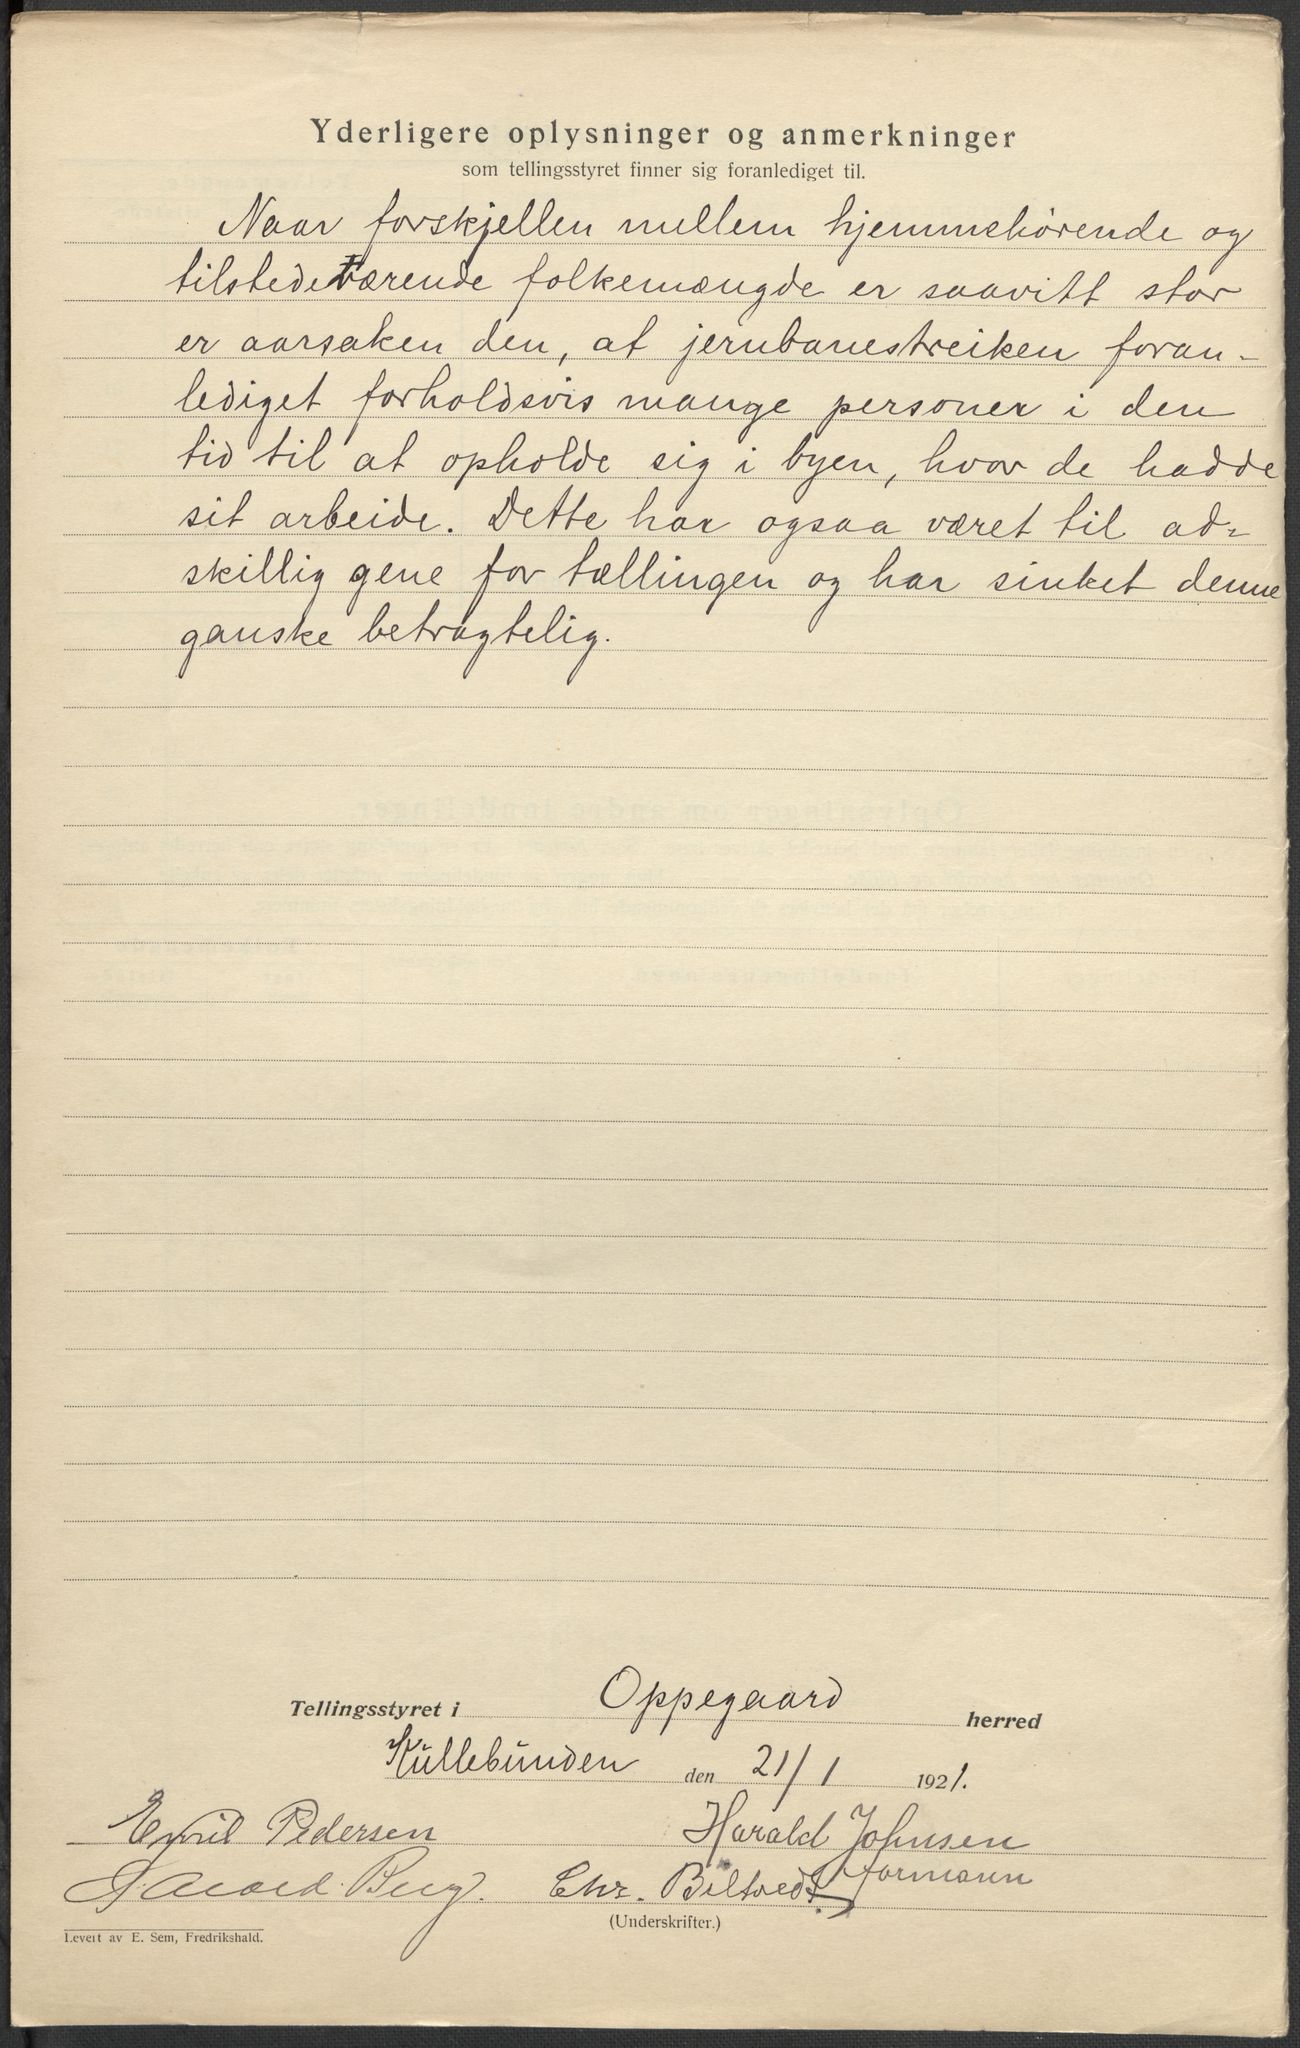 Yderligere oplysninger og anmerkninger
som tellingsstyret finner sig foranlediget til.
Naar forskjellen mellem hjemmehørende og
tilstedeværende folkemængde er saavitt stor
er aarsaken den, at jernbanestreiken foran-
lediget forholdsvis mange personer i den
tid til at opholde sig i byen, hvor de hadde
sit arbeide. Dette har ogsaa været til ad-
skillig gene for tællingen og har sinket denne
ganske betragtelig.
Tellingsstyret i Oppegaard herred
Kullebunden den 21/1 1921.
Emil Pedersen Harald Johnsen
formann
Berg. Chr. Biltvedt
(Underskrifter.)
Levert av E. Sem, Fredrikshald.